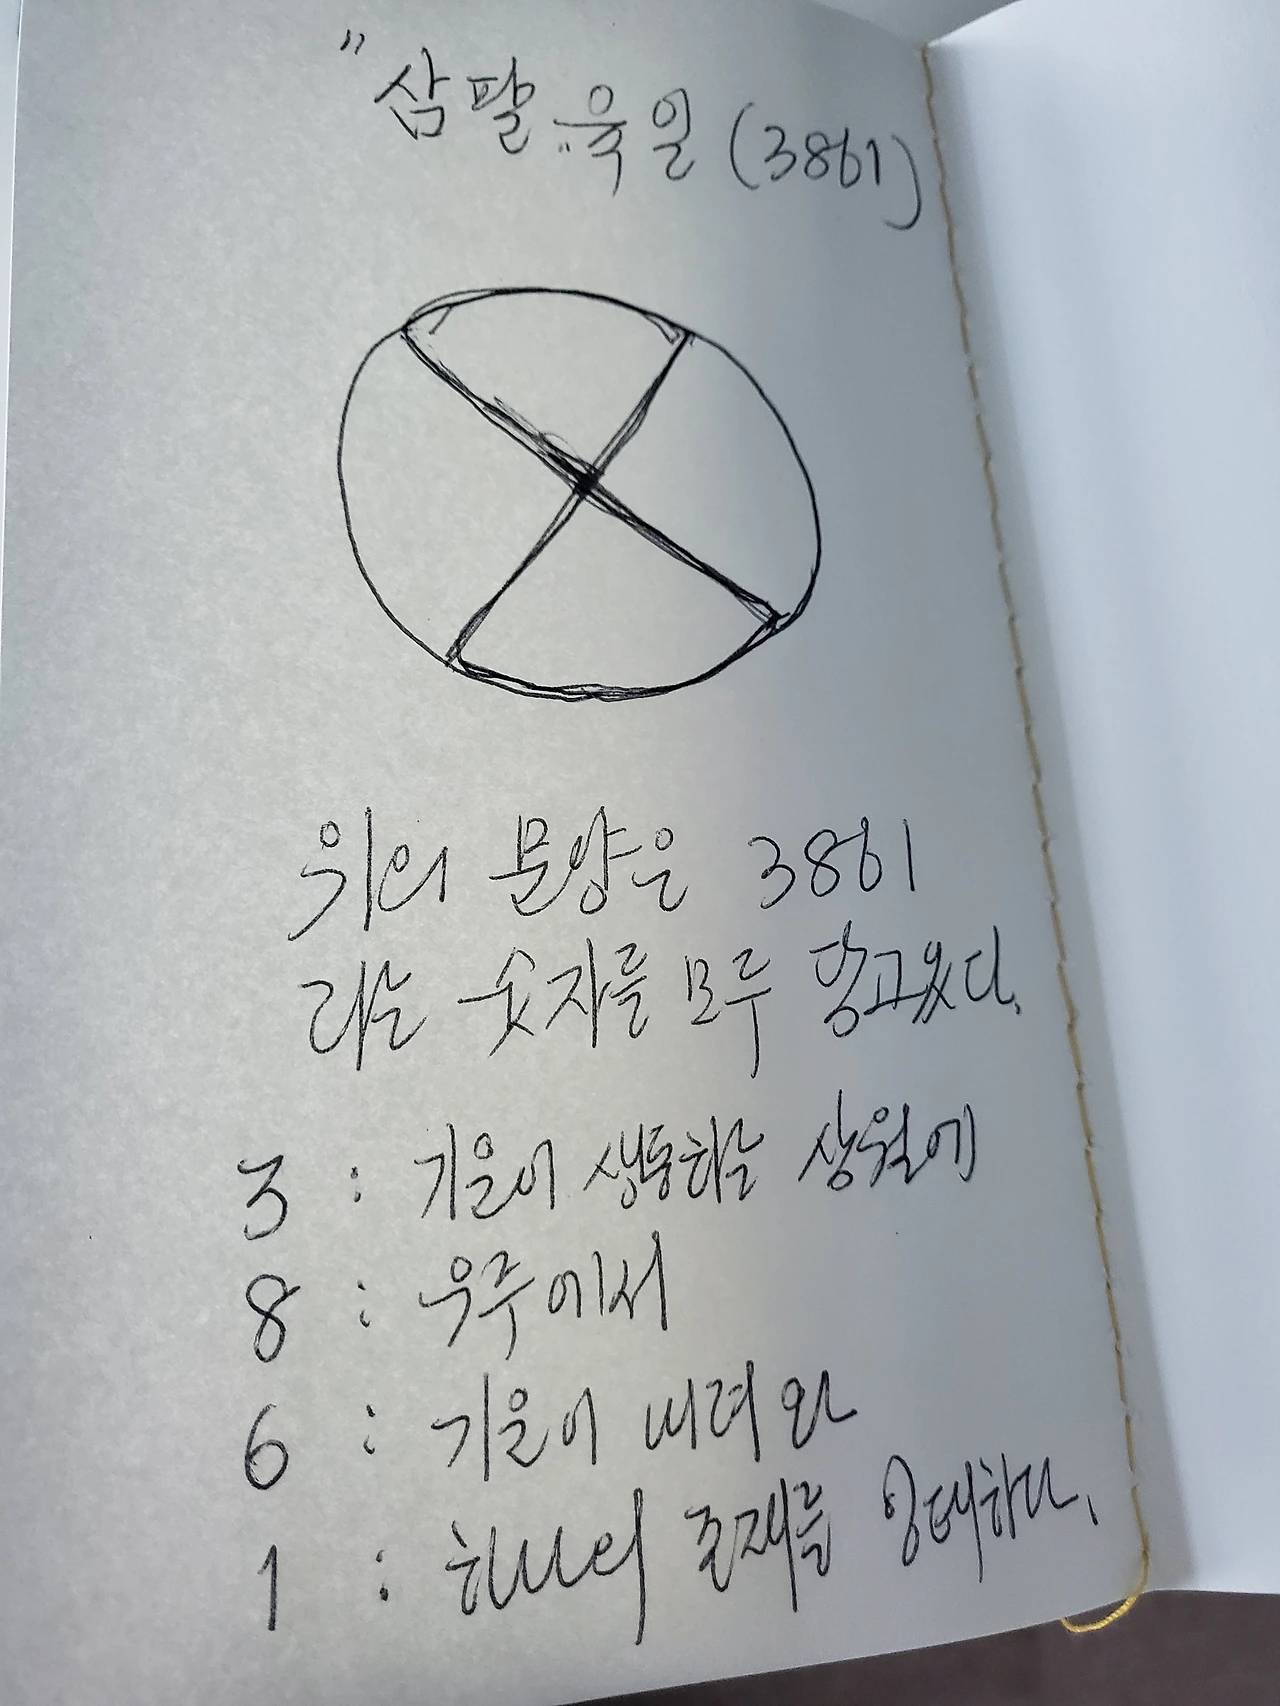 "삼팔육일 (3861)
위의 문양은 3861
라는 숫자를 모두 담고있다.
3 : 기운이 생동하는 삼월에
8 : 우주에서
6 : 기운이 내려와
1 : 하나의 존재를 잉태하다.